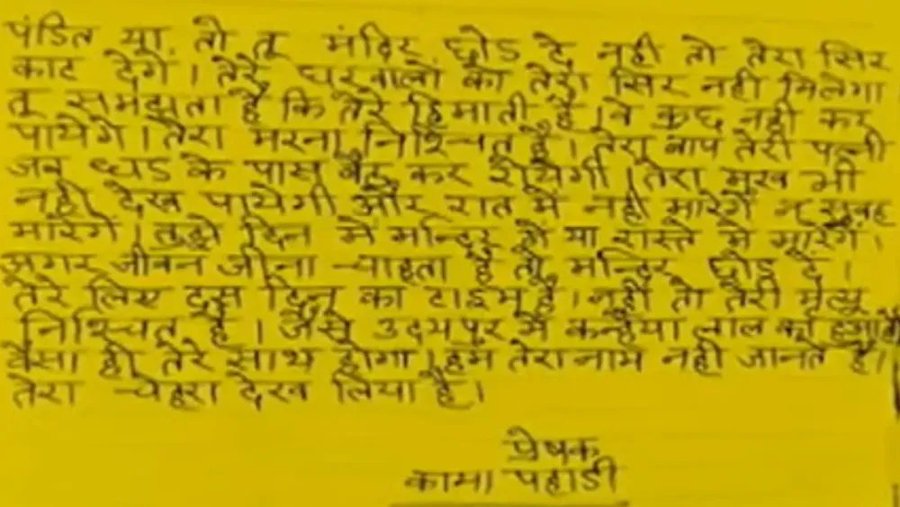 पंडित या तो तू मंदिर छोड दे नही तो तेरा सिर
काट देगें। तेरे घरवालों को तेरा सिर नही मिलेगा
तू समझता है कि तेरे हिमाती है। वे कुछ नही कर
पायेगे। तेरा मरना निश्चित है। तेरा बाप तेरी पत्नी
जब धड के पास बैठ कर रोयेगी। तेरा मुख भी
नही देख पायेगी और रात मे नही मारेगें न सुबह
मारेगें। तुझे दिन मे मन्दिर मे या रास्ते मे मारेगें।
अगर जीवन जीना चाहता है तो मन्दिर छोड दे।
तेरे लिए दस दिन का टाइम है। नही तो तेरी मृत्यू
निश्चित है। जैसे उदयपुर मे कन्हैया लाल का हुआ
वैसा ही तेरे साथ होगा। हम तेरा नाम नही जानते है।
तेरा चेहरा देख लिया है।
प्रेषक
कामा पहाडी